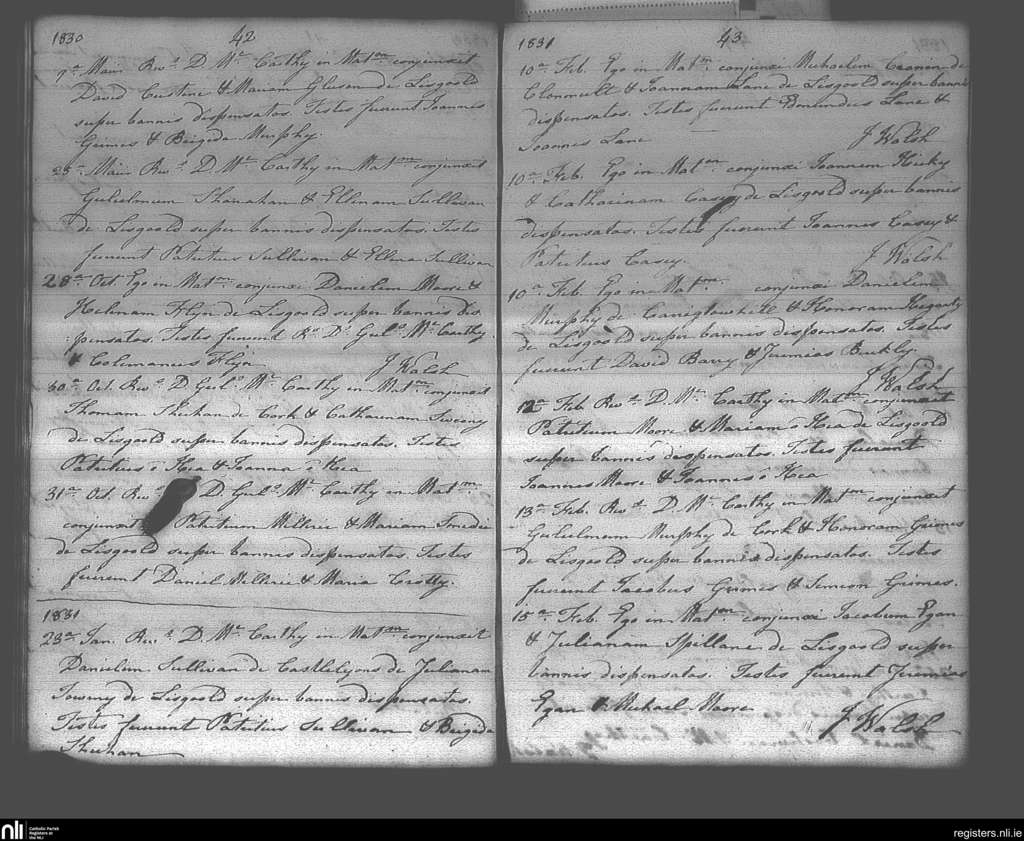 1830 42
9a Maii Revd. D. Mc. Carthy in Matm. conjunxit
David & Mariam de Lisgoold
super bannis dispensatos. Testes fuerunt Joannes
Grimes & Brigida Murphy.
23a Maii Revd. D. Mc. Carthy in Matm conjunxit
Gulielmum Shanahan & Ellenam Sullivan
de Lisgoold super bannis dispensatos. Testes
fuerunt Patritius Sullivan & Ellena Sullivan
28a Oct. Ego in Matm. conjunxi Danielem Moore &
Helenam Flyn de Lisgoold super bannis dis
pensatos. Testes fuerunt Rd. D. Gulo. Mc. Carthy
& Colemanus Flyn J Walsh
30a Oct. Revd. D. Gulo. Mc. Carthy in Matm. conjunxit
Thomam Shehan de Cork & Catharinam Sweeny
de Lisgoold super bannis dispensatos. Testes
Patritius ó Hea & Joanna ó Hea
31a Oct. Revd. D. Gulo. Mc. Carthy in Matm.
conjunxit Patritium & Mariam
de Lisgoold super bannis dispensatos. Testes
fuerunt Daniel & Maria Crotty.
1831
23a Jan. Revd. D. Mc. Carthy in Matm conjunxit
Danielem Sullivan de Castlelyons & Julianam
de Lisgoold super bannis dispensatos.
Testes fuerunt Patritius Sullivan & Brigida
Shehan
1831 43
10a Feb. Ego in Matm. conjunxi Michaelem Cronin de
Clonmult & Joannam Lane de Lisgoold super bannis
dispensatos. Testes fuerunt Lane &
Joannes Lane J Walsh
10a Feb. Ego in Matm conjunxi Joannem Hicky
& Catharinam Casey de Lisgoold super bannis
dispensatos. Testes fuerunt Joannes Casey &
Patritius Casey. J Walsh
10a Feb. Ego in Matm. conjunxi Danielem
Murphy de & Honoram Hegarty
de Lisgoold super bannis dispensatos. Testes
fuerunt David Barry & Jeremias Buckly.
J Walsh
12a Feb. Revd. D. Mc. Carthy in Matm conjunxit
Patritium Moore & Mariam ó Hea de Lisgoold
super bannis dispensatos. Testes fuerunt
Joannes Moore & Joannes ó Hea
13a Feb. Revd. D. Mc. Carthy in Matm conjunxit
Gulielmum Murphy de Cork & Honoram Grimes
de Lisgoold super bannis dispensatos. Testes
fuerunt Jacobus Grimes & Simeon Grimes.
15a Feb. Ego in Matm. conjunxi Jacobum Egan
& Julianam Spillane de Lisgoold super
bannis dispensatos. Testes fuerunt Jeremias
Egan & Michael Moore
J Walsh
nli Catholic Parish
Registers at
the NLI
registers.nli.ie